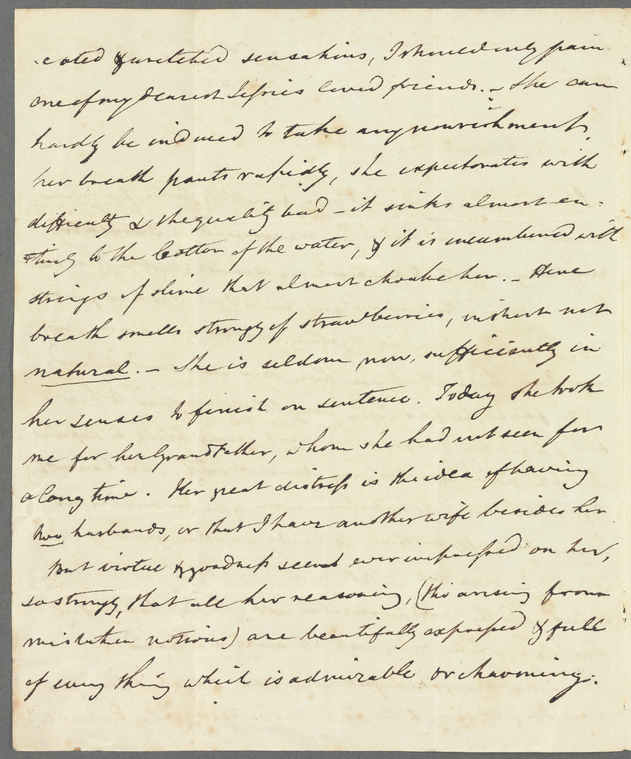 cated & wretched sensations, I should only pain
one of my dearest Sifries loved friends. - She can
hardly be induced to take any nourishment,
her breath pants rapidly, she expectorates with
difficulty & the quality bad - it sinks almost en=
tirely to the bottom of the water, & it is incumbered with
strings of slime that almost choake her. - Her
breath smells strongly of strawberries, in short not
natural. - She is seldom now, sufficiently in
her senses to finish on sentence. Today she took
me for her Grandfather, whom she had not seen for
a long time. Her great distress is the idea of having
two husbands, or that I have another wife besides her
But virtue & goodness seems ever impressed on her,
so strongly, that all her reasoning, (tho' arising from
mistaken notions) are beautifully expressed & full
of every thing which is admirable or charming.